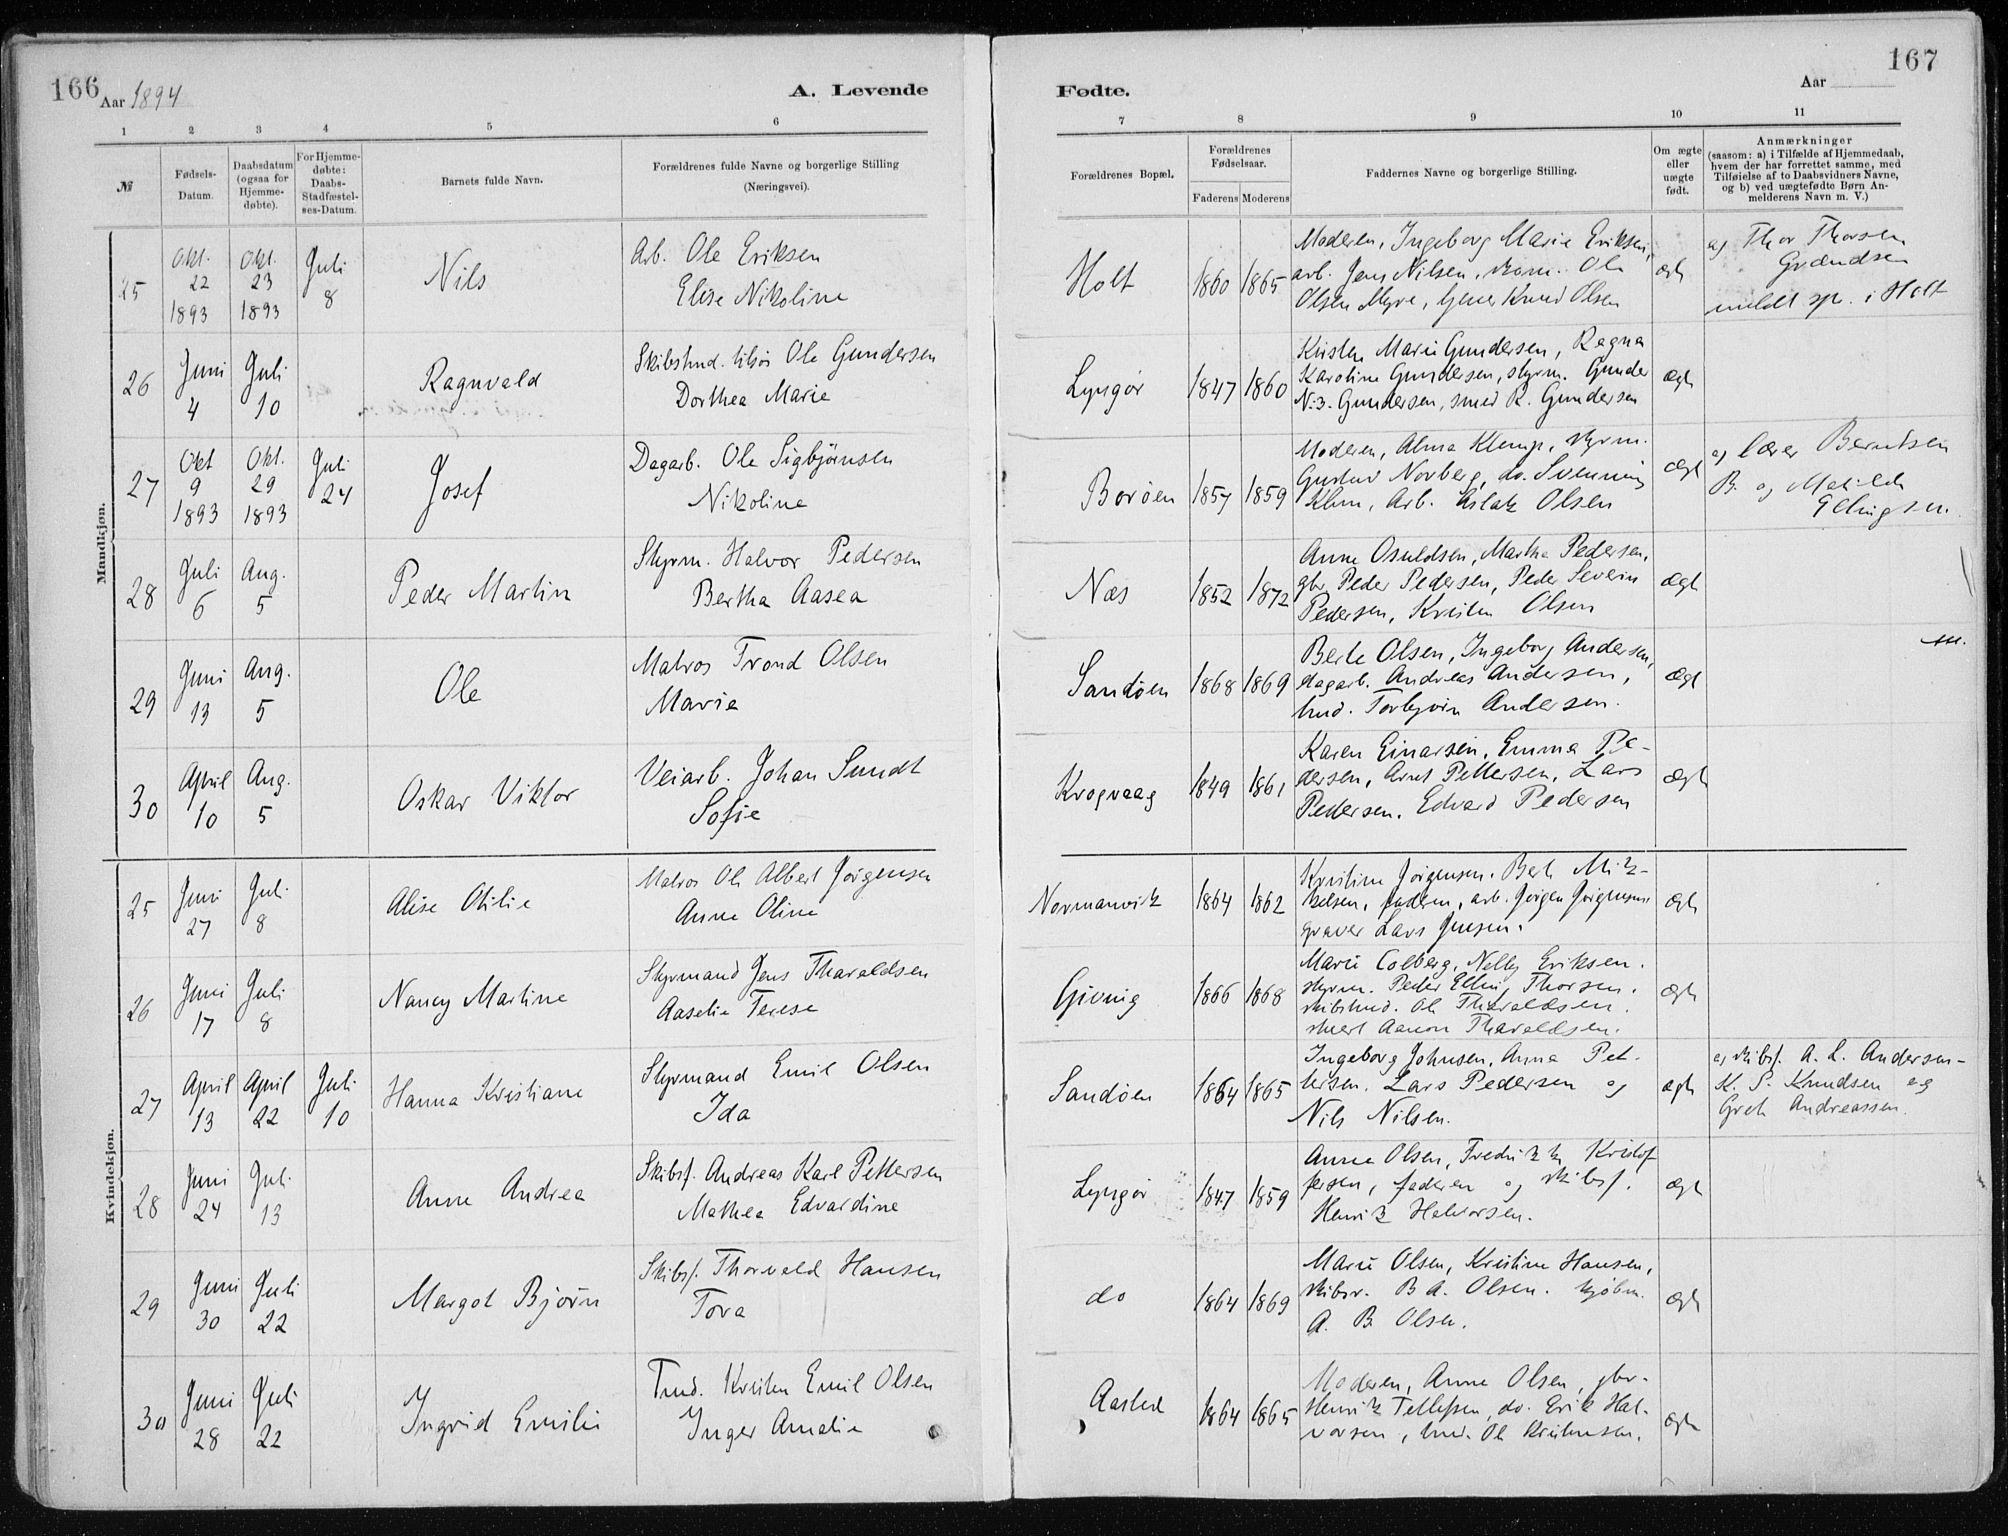 166
Aar 1894
A. Levende
1 2 3 4 5 6
№
Fødsels-
Datum.
Daabsdatum
(ogsaa for
Hjemme-
døbte).
For Hjemme-
døbte:
Daabs-
Stadfæstel-
ses-Datum.
Barnets fulde Navn.
Forældrenes fulde Navne og borgerlige Stilling
(Næringsvei).
Mandkjøn.
25
Okt.
22
1893
Okt.
23
1893
Juli
8
Nils
Arb. Ole Eriksen
Elise Nikoline
26
Juni
4
Juli
10
Ragnvald
Skibstmd. Ole Gundersen
Dorthea Marie
27
Okt
9
1893
Okt.
29
1893
Juli
24
Josef
Dagarb. Ole Sigbjørnsen
Nikoline
28
Juli
6
Aug.
5
Peder Martin
Styrm. Halvor Pedersen
Bertha Aasea
29
Juni
13
Aug.
5
Ole
Matros Trond Olsen
Marie
30
April
10
Aug.
5
Oskar Viktor
Veiarb. Johan Sundt
Sofie
Kvindekjøn.
25
Juni
27
Juli
8
Alise Otilie
Matros Ole Albert Jørgensen
Anne Oline
26
Juni
17
Juli
8
Nancy Martine
Styrmand Jens Tharaldsen
Aaselie Terese
27
April
13
April
22
Juli
10
Hanna Kristiane
Styrmand Emil Olsen
Ida
28
Juni
24
Juli
13
Anne Andrea
Skibsf. Andreas Karl Pettersen
Mathea Edvardine
29
Juni
30
Juli
22
Margot Bjørn
Skibsf. Thorvald Hansen
Tora
30
Juni
28
Juli
22
Ingrid Emilie
Tmd. Kristen Emil Olsen
Inger Amalie
167
Aar
Fødte.
7 8 9 10 11
Forældrenes Bopæl.
Forældrenes
Fødselsaar.
Faderens Moderens
Faddernes Navne og borgerlige Stilling.
Om ægte
eller
uægte
født.
Anmærkninger
(saasom: a) i Tilfælde af Hjemmedaab,
hvem der har forrettet samme, med
Tilføielse af to Daabsvidners Navne,
og b) ved uægtefødte Børn An-
melderens Navn m. V.)
Holt
1860 1865
Moderen, Ingeborg Marie Eriksen,
arb. Jens Nilsen, Ole
Olsen Myre, Knud Olsen
ægte
a) Thor Thorsen
Grændsen
meldt sp. i Holt
Lyngør
1847 1860
Kristen Marie Gundersen, Ragna
Karoline Gundersen, styrm. Gunder
Gundersen, smed R. Gundersen
ægte
Borøen
1857 1859
Moderen, Alma Klemp, styrm.
Gustav Norberg, do. Svenning
Klem, Arb. Aslak Olsen
ægte
a) lærer Berntsen
B. og Matilde
Ellingsen
Næs
1852 1872
Anne Osuldsen, Martha Pedersen,
gbr. Peder Pedersen, Peder Severin
Pedersen, Kristen Olsen
ægte
Sandøen
1868 1869
Berte Olsen, Ingeborg Andersen,
dagarb. Andreas Andersen,
tmd. Torbjørn Andersen.
ægte
Krogvaag
1849 1861
Karen Einarsen, Emma Pe-
dersen, Arnt Pettersen, Lars
Pedersen, Edvard Pedersen
ægte
Normanvik
1864 1862
Kristine Jørgensen. Berte Mik-
kelsen, faderen, arb. Jørgen Jørgensen
graver Lars Jensen.
ægte
Gjeving
1866 1868
Marie Colberg, Nelly Eriksen.
styrm. Peder Elling Thorsen.
skibstmd. Ole Tharaldsen.
Aanon Tharaldsen.
ægte
Sandøen
1864 1865
Ingeborg Johnsen, Anna Pet-
tersen. Lars Pedersen og
Nils Nilsen.
ægte
a) skibsf. A. L. Andersen –
K. S. Knudsen og
Grete Andreassen.
Lyngør
1847 1859
Anne Olsen, Fredrikke Kristof-
fersen, faderen og skibsf.
Henrik Halvorsen.
ægte
do
1864 1869
Marie Olsen, Kristine Hansen,
skibsr. B A. Olsen. kjøbm.
A. B. Olsen.
ægte
Aasted
1864 1865
Moderen, Anne Olsen, gbr.
Henrik Tellefsen, do. Erik Hal-
vorsen, tmd. Ole Kristensen.
ægte